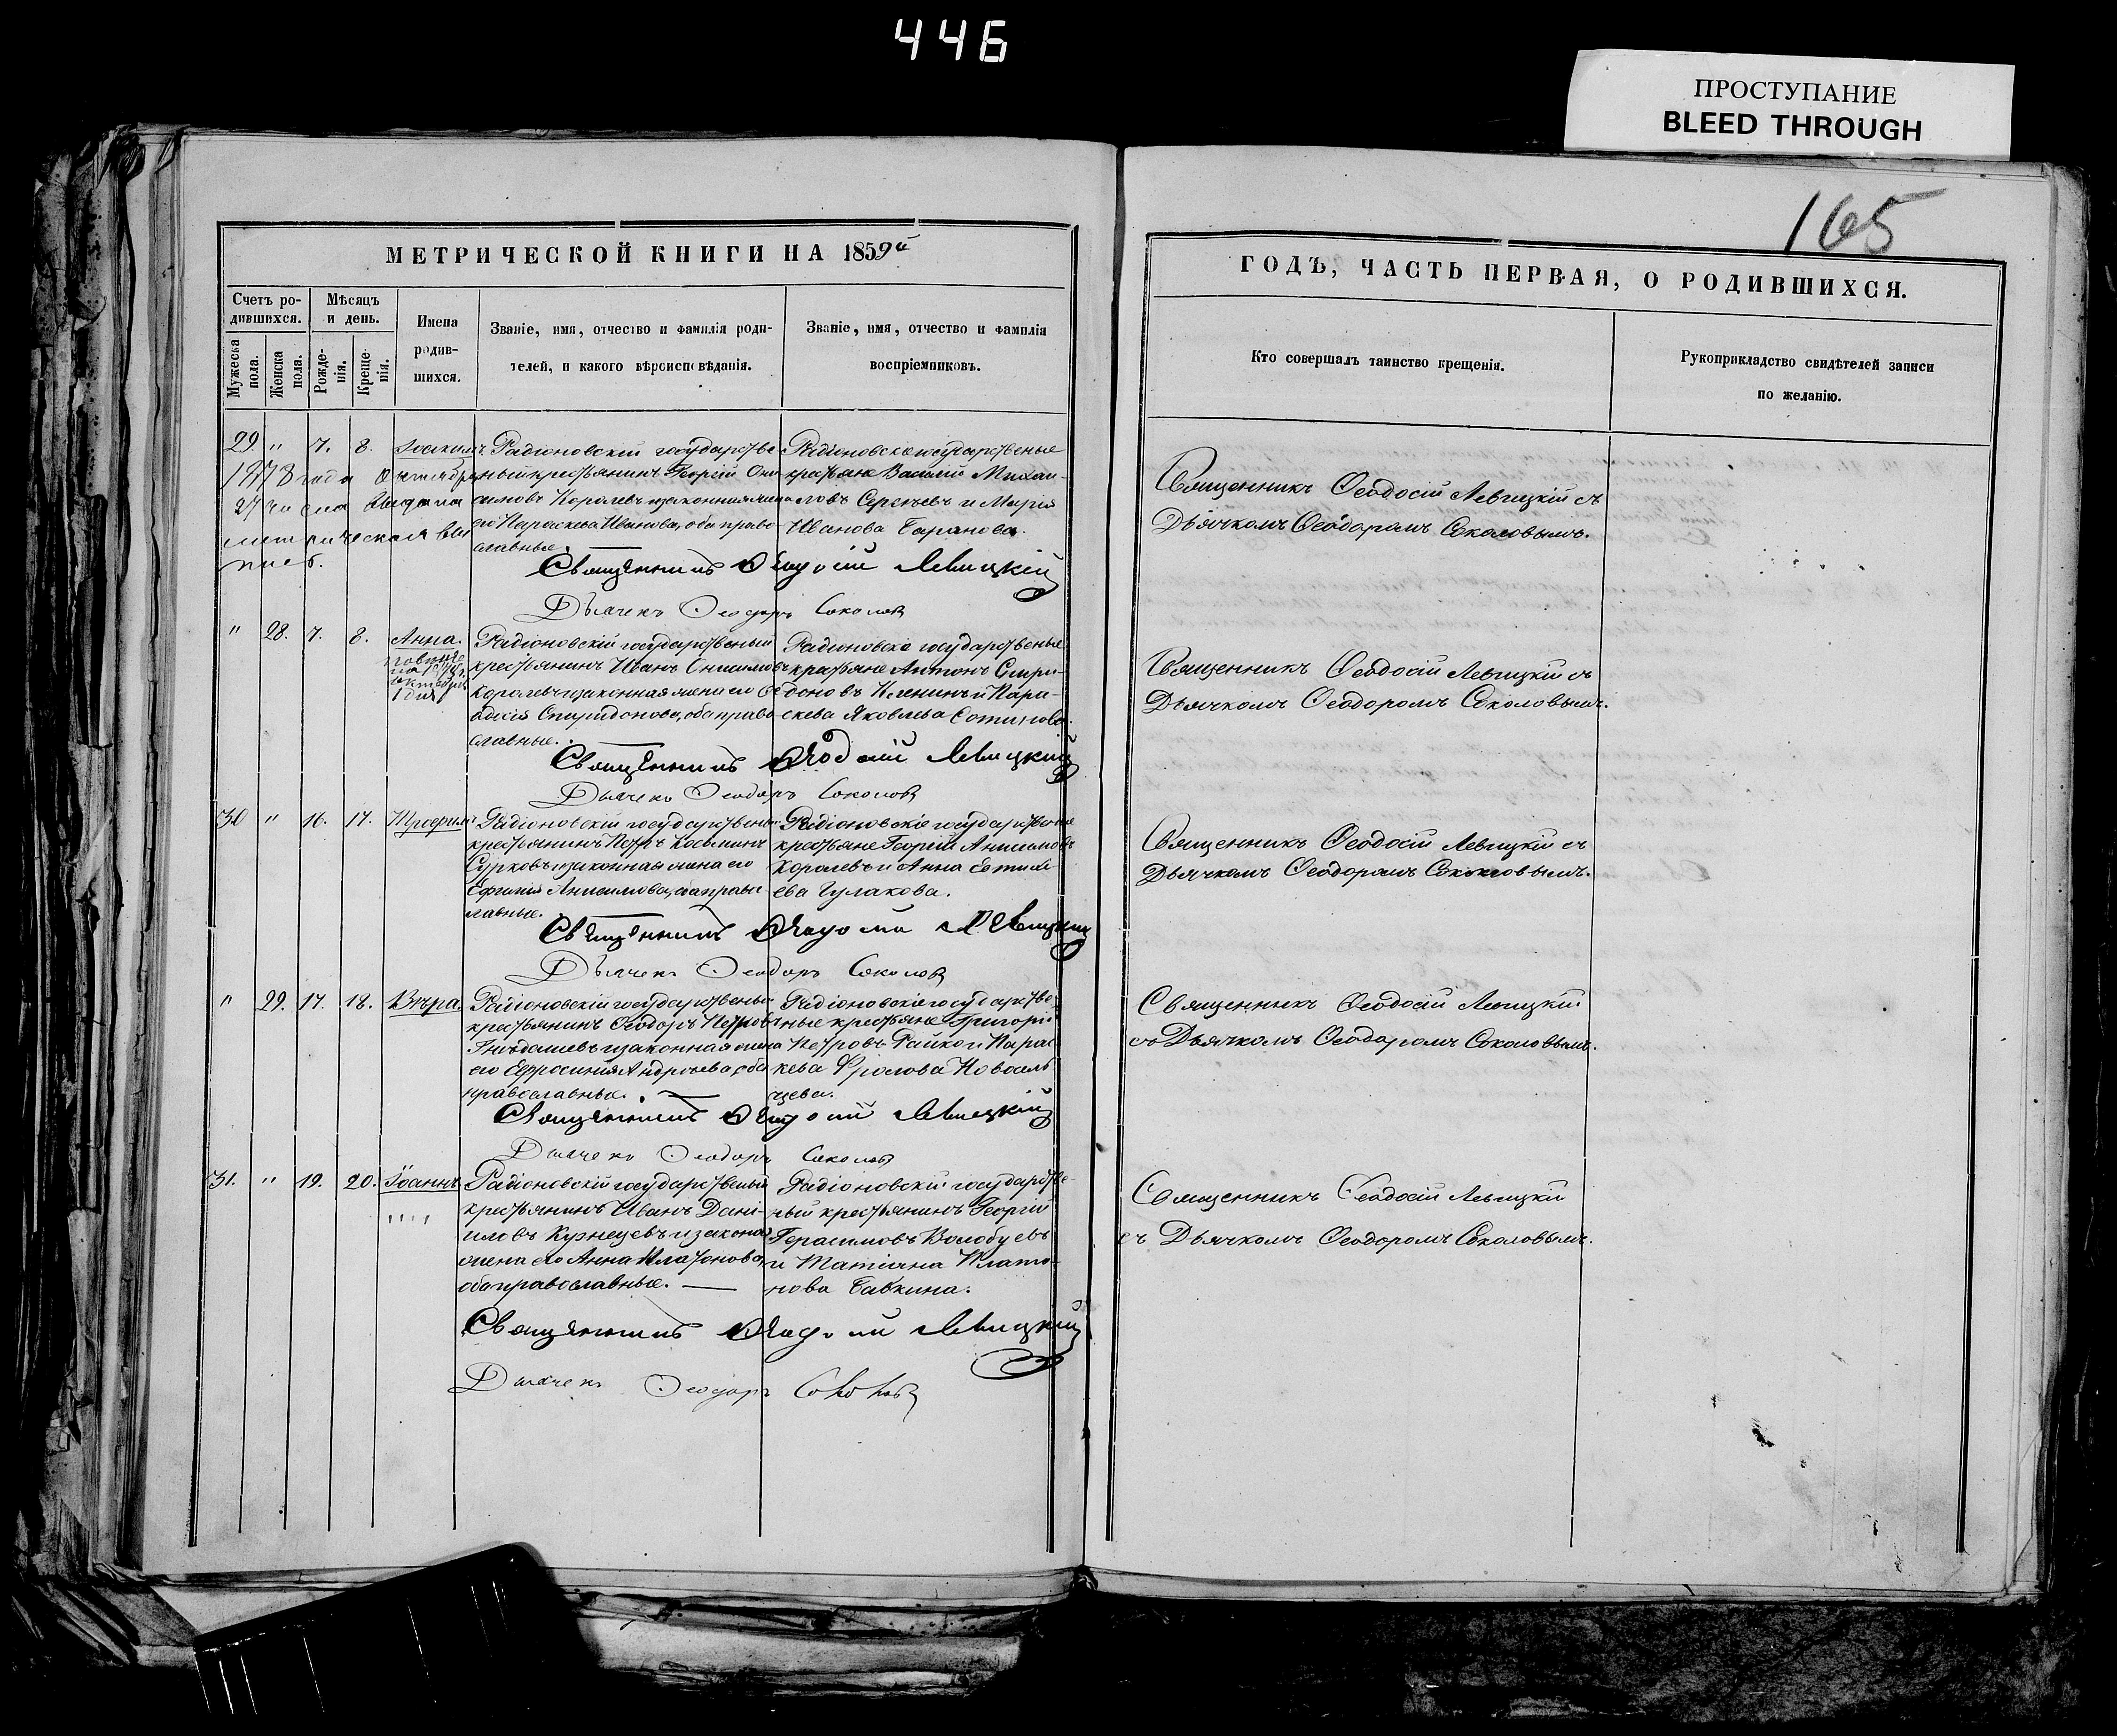 446
ПРОСТУПАНИЕ
BLEED THROUGH
165
МЕТРИЧЕСКОЙ КНИГИ НА 1859й
Счетъ ро-
дившихся.
Мужеска
пола.
Женска
пола.
Мѣсяцъ
и день.
Рожде-
нія.
Креще-
нія.
Имена
родив-
шихся.
Званіе, имя, отчество и фамилія роди-
телей, и какого вѣроисповѣданія.
Званіе, имя, отчество и фамилія
воспріемниковъ.
29. " 7. 8. Іоакимъ
1878 года Октября
27 числа Выдана
метрическая вы
пись.
Радіоновскій государстве
ный крестьянинъ Георгій Они
симовъ Королевъ и законная жена
его Параскева Иванова, оба право
славные.
Радіоновскіе государственые
крестьяне Василій Михаи-
ловъ Сергѣевъ и Марія
Иванова Баранова.
Священникъ Ѳеодосій Левицкій
Дьячекъ Ѳеодоръ Соколовъ
" 28. 7. 8. Анна.
Радіоновскій государственый
крестьянинъ Иванъ Онисимовъ
Королевъ и законная жена его Ѳе
одосія Спиридонова, оба право
славные.
Радіоновскіе государственые
крестьяне Антонъ Спири-
доновъ и Пара-
скева Яковлева
Священникъ Ѳеодосій Левицкій
Дьячекъ Ѳеодоръ Соколовъ
30 " 16. 17. Трофимъ
Радіоновскій государственый
крестьянинъ Петръ Косьминъ
Сурковъ и законная жена его
Евгенія Анисимова, оба право
славные.
Радіоновскіе государственые
крестьяне Георгій Анисимовъ
Королевъ и Анна
ева Чулакова.
Священникъ Ѳеодосій Левицкій
Дьячекъ Ѳеодоръ Соколовъ
" 29. 17. 18. Вѣра.
Радіоновскій государственый
крестьянинъ Ѳеодоръ Петровъ
Гнѣдашевъ и законная жена
его Ефросинія Андреева, оба
православные.
Радіоновскіе государстве-
ные крестьяне Григорій
Петровъ Райко и Парас
кева Фролова Новосель
цева.
Священникъ Ѳеодосій Левицкій
Дьячекъ Ѳеодоръ Соколовъ
31. " 19. 20. Іоаннъ
Радіоновскій государственый
крестьянинъ Иванъ Дани-
ловъ Кузнецевъ и законая
жена его Анна Платонова,
оба православные.
Радіоновскій государстве-
ный крестьянинъ Георгій
Герасимовъ Волобуевъ
и Татіана Плато-
нова Бабкина.
Священникъ Ѳеодосій Левицкій
Дьячекъ Ѳеодоръ Соколовъ
ГОДЪ, ЧАСТЬ ПЕРВАЯ, О РОДИВШИХСЯ.
Кто совершалъ таинство крещенія.
Рукоприкладство свидѣтелей записи
по желанію.
Священникъ Ѳеодосій Левицкій съ
Дьячкомъ Ѳеодоромъ Соколовымъ.
Священникъ Ѳеодосій Левицкій съ
Дьячкомъ Ѳеодоромъ Соколовымъ.
Священникъ Ѳеодосій Левицкій съ
Дьячкомъ Ѳеодоромъ Соколовымъ.
Священникъ Ѳеодосій Левицкій
съ Дьячкомъ Ѳеодоромъ Соколовымъ.
Священникъ Ѳеодосій Левицкій
съ Дьячкомъ Ѳеодоромъ Соколовымъ.